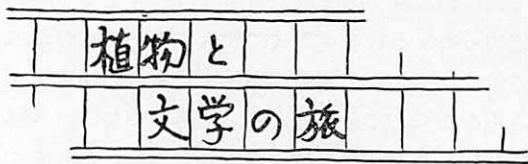 植物と
文学の旅